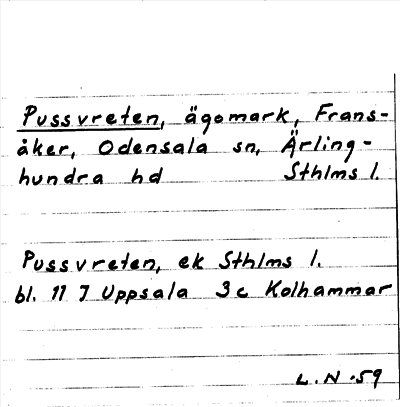 Pussvreten, ägomark, Frans-
åker, Odensala sn, Ärling-
hundra hd Sthlms l.
Pussvreten, ek Sthlms l.
bl. 11 I Uppsala 3c Kolhammar
L.N.59